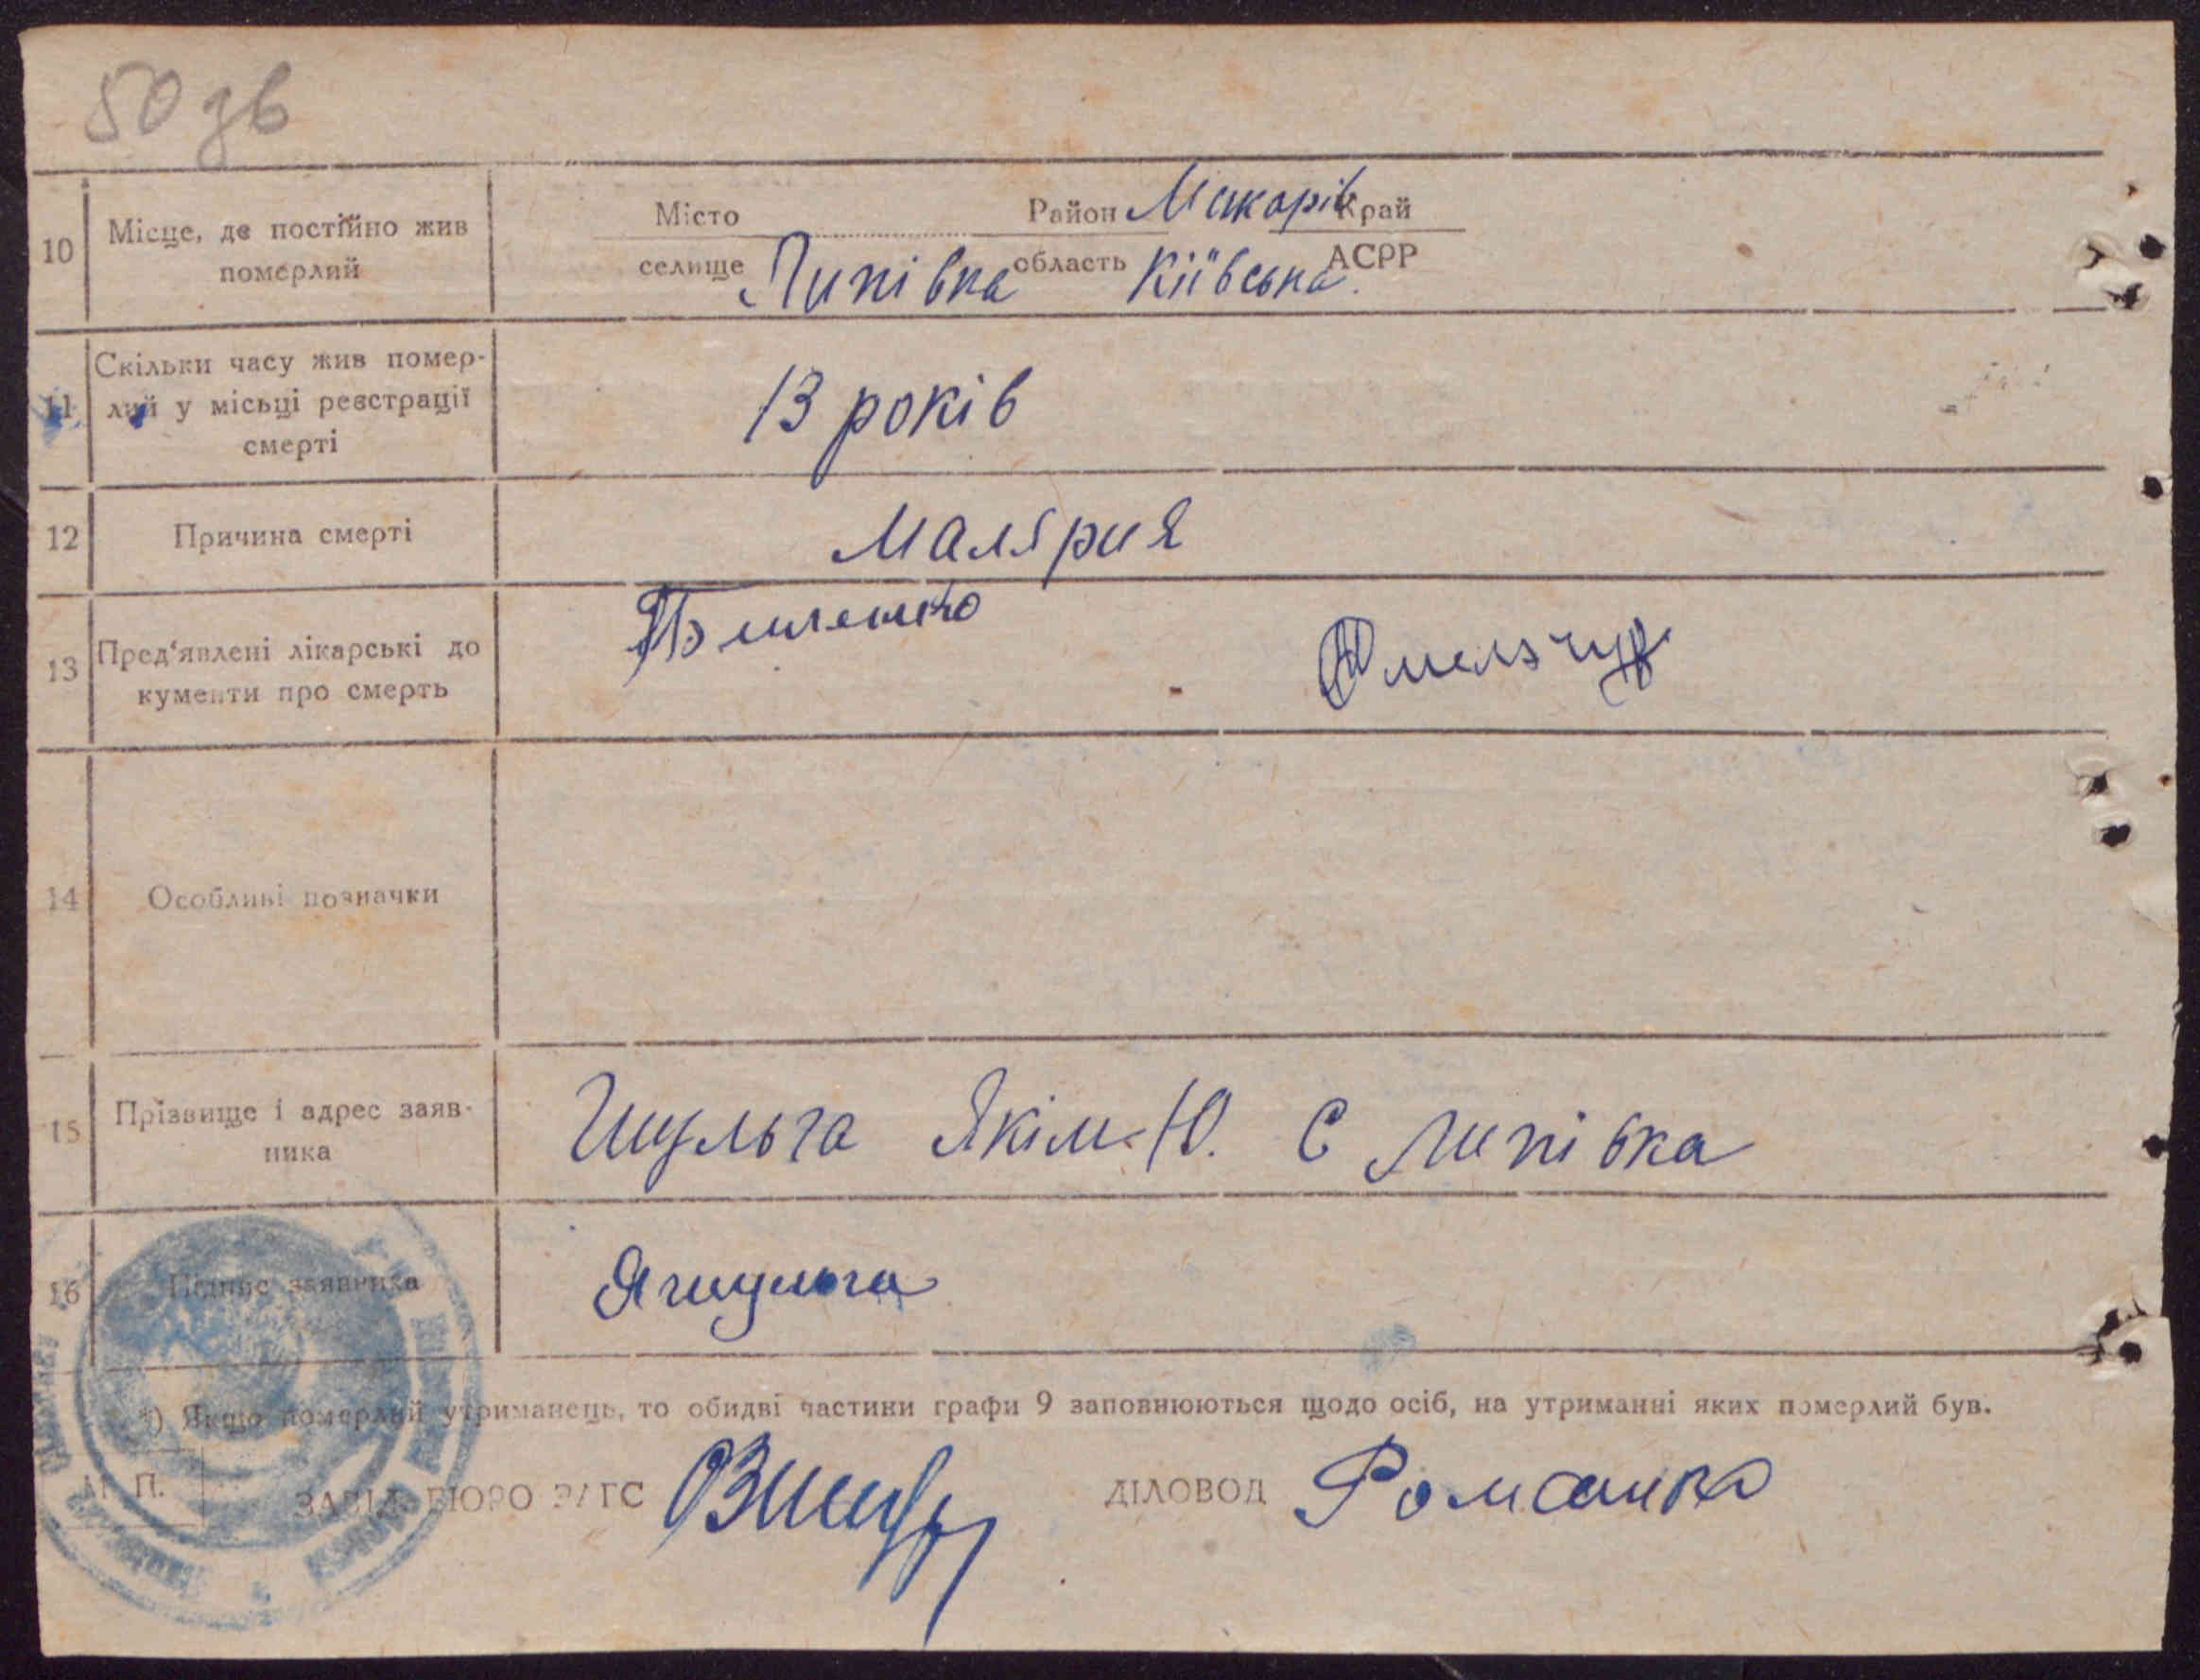 50 зв
10 Місце, де постійно жив померлий
Місто Район Макарів Край
селище Липівка область Київська АСРР
11 Скільки часу жив помер-
лий у місьці реєстрації
смерті
13 років
12 Причина смерті
Малярия
13 Пред'явлені лікарські до
кументи про смерть
14 Особливі позначки
15 Прізвище і адрес заяв-
ника
Шульга Якім Ю. С Липівка
16 Підпис заявника
Яшульга
*) Якщо померлий утриманець, то обидві частини графи 9 заповнюються щодо осіб, на утриманні яких померлий був.
М. П.
ЗАВІД. БЮРО ЗАГС ДІЛОВОД Романко